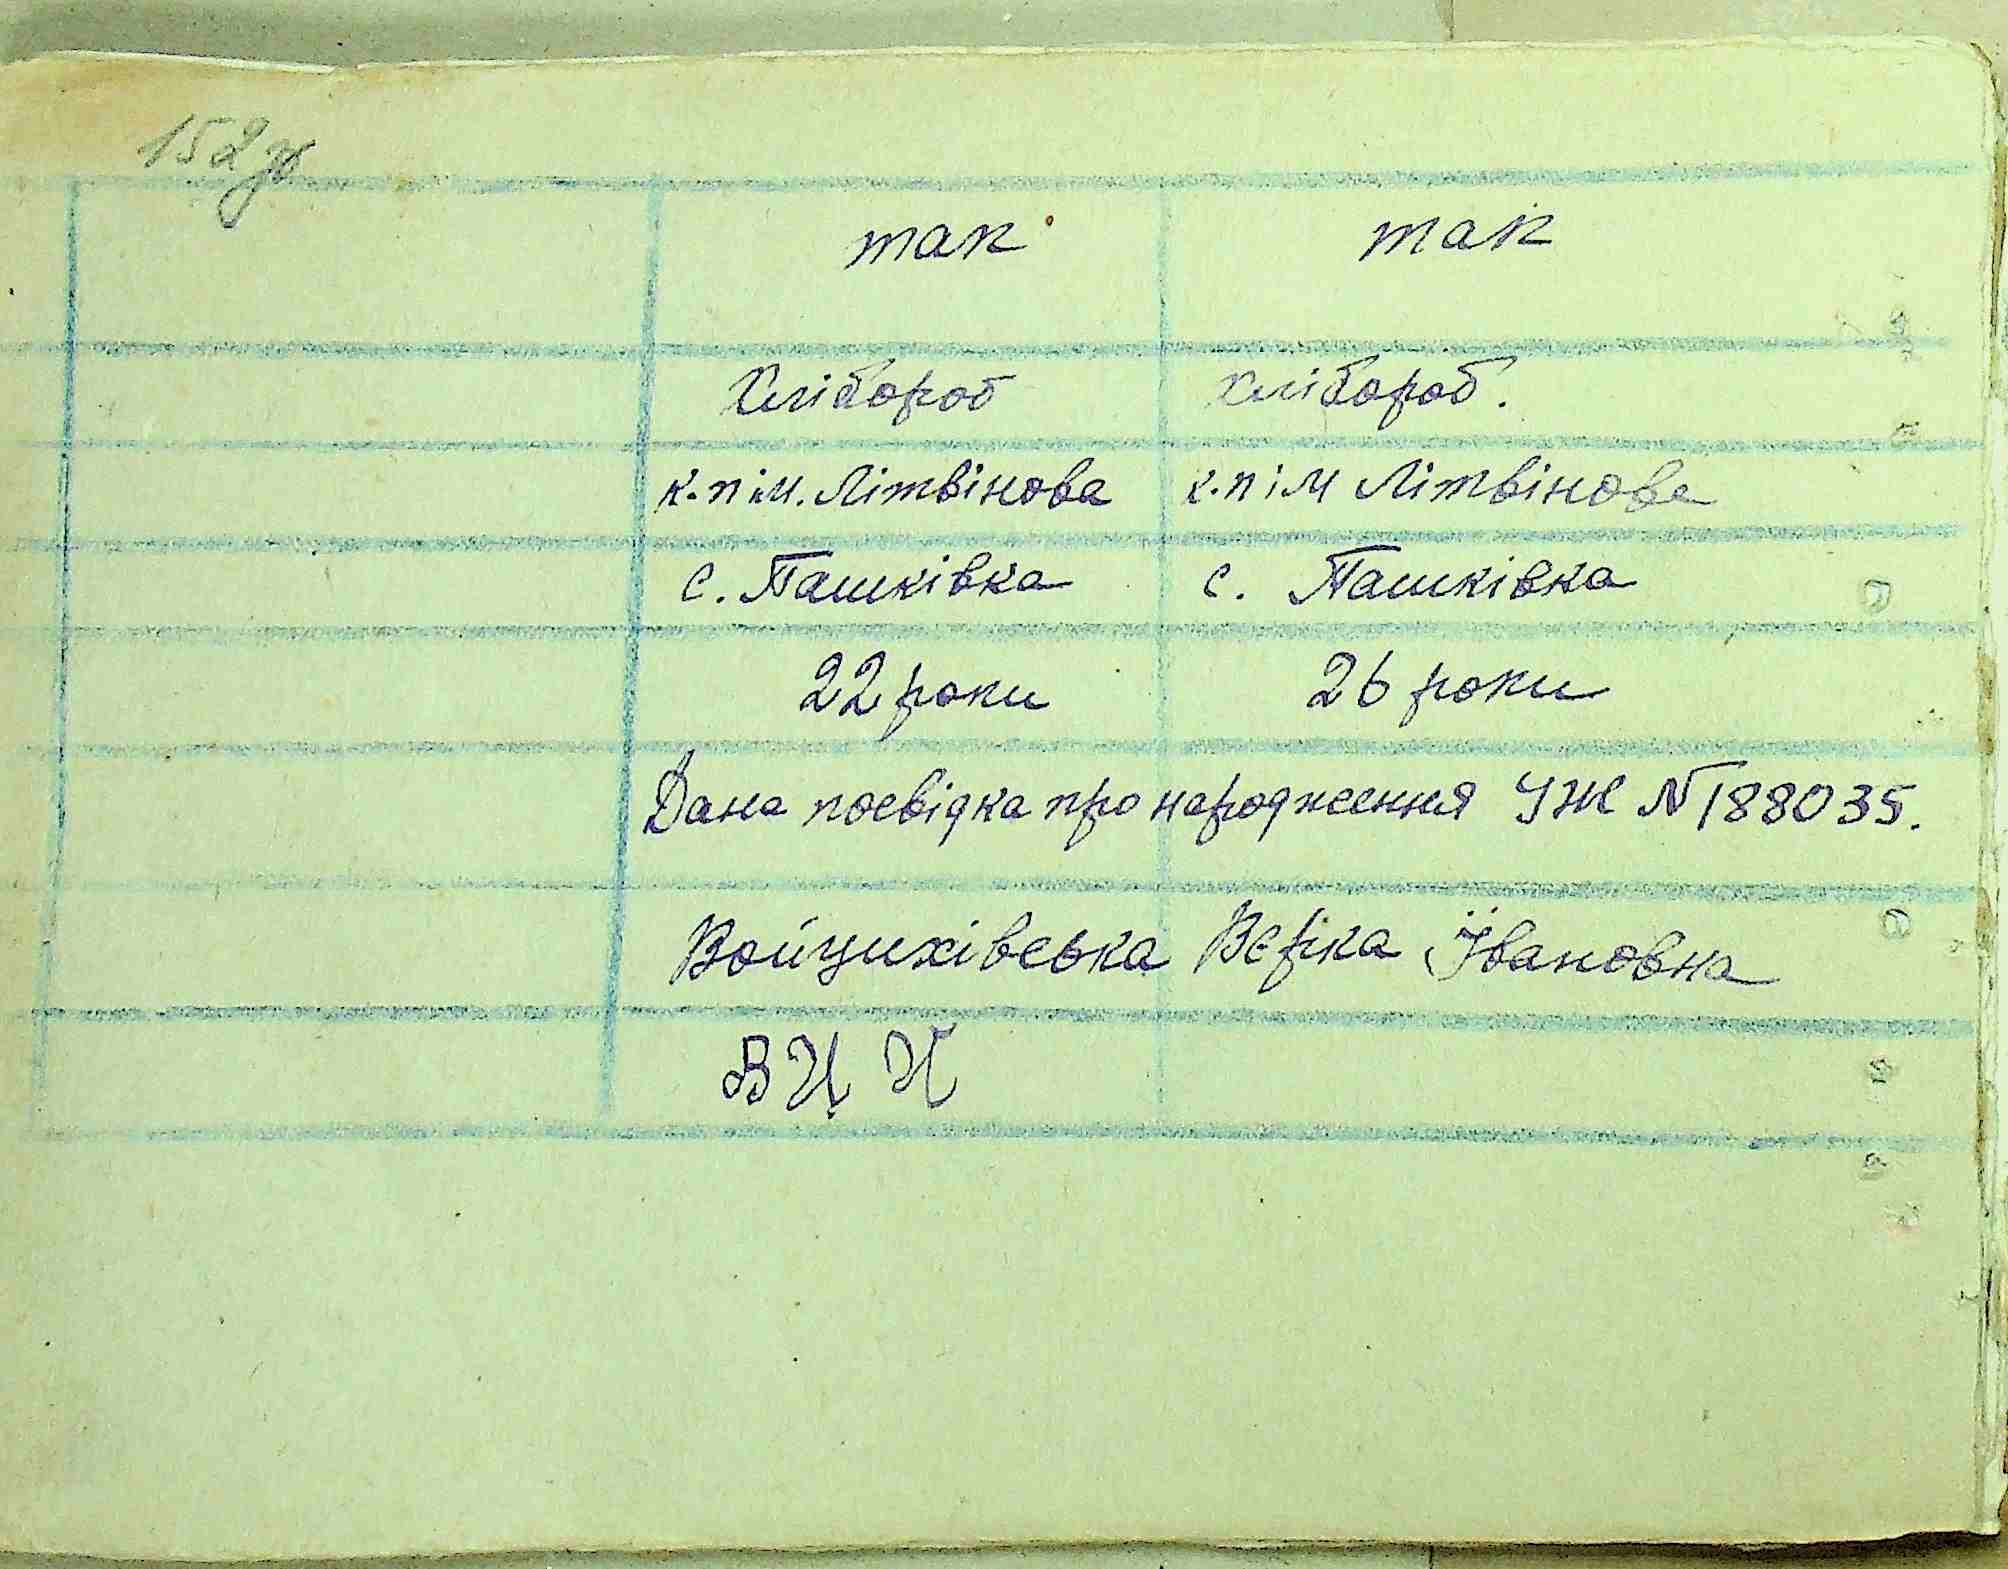 152 зв
так так
Хлібороб хлібороб.
к.п ім. Літвінова к.п ім Літвінова
с. Пашківка с. Пашківка
22 роки 26 роки
Дана посвідка про народження УЖ N 188035.
Войцихівська Вєрка Івановна